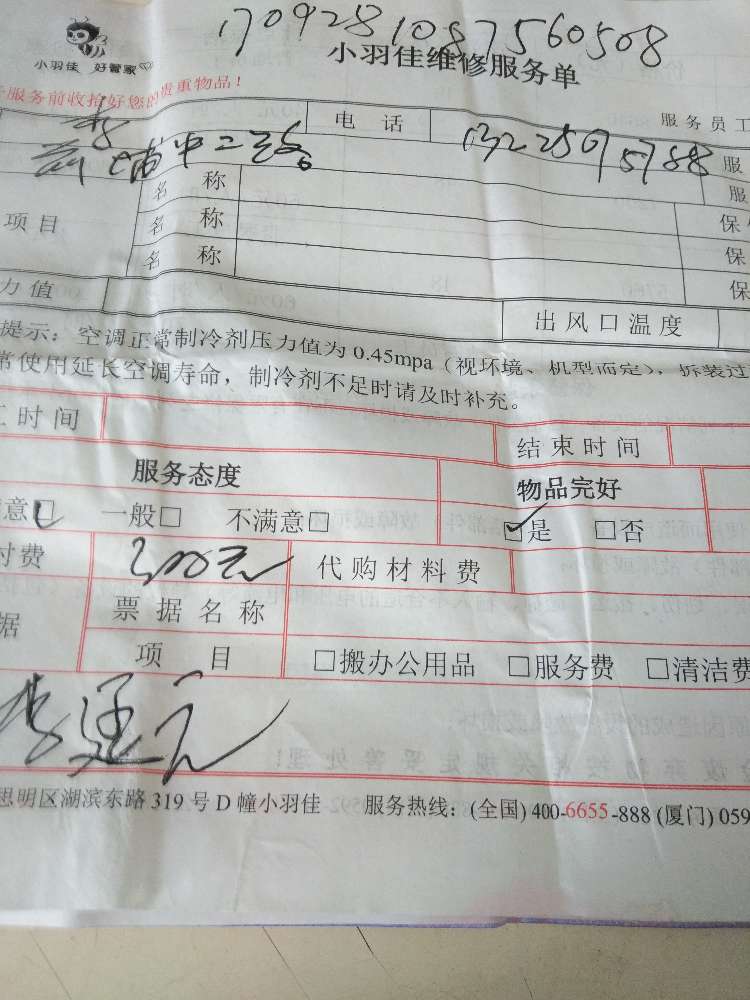 170928108 7560508
小羽佳 好管家
小羽佳维修服务单
服务前收拾好您的贵重物品！
李
电话
13225975788
服务员工
前埔中二路
服
名称
服
项目
名称
保
名称
保
力值
出风口温度
保
提示：空调正常制冷剂压力值为0.45mpa（视环境、机型而定），拆装过
常使用延长空调寿命，制冷剂不足时请及时补充。
工时间
结束时间
服务态度
物品完好
意□ 一般□ 不满意□
☑是 □否
付费
300元
代购材料费
据
票据名称
项目
□搬办公用品 □服务费 □清洁费
思明区湖滨东路319号D幢小羽佳 服务热线：(全国) 400-6655-888 (厦门) 059